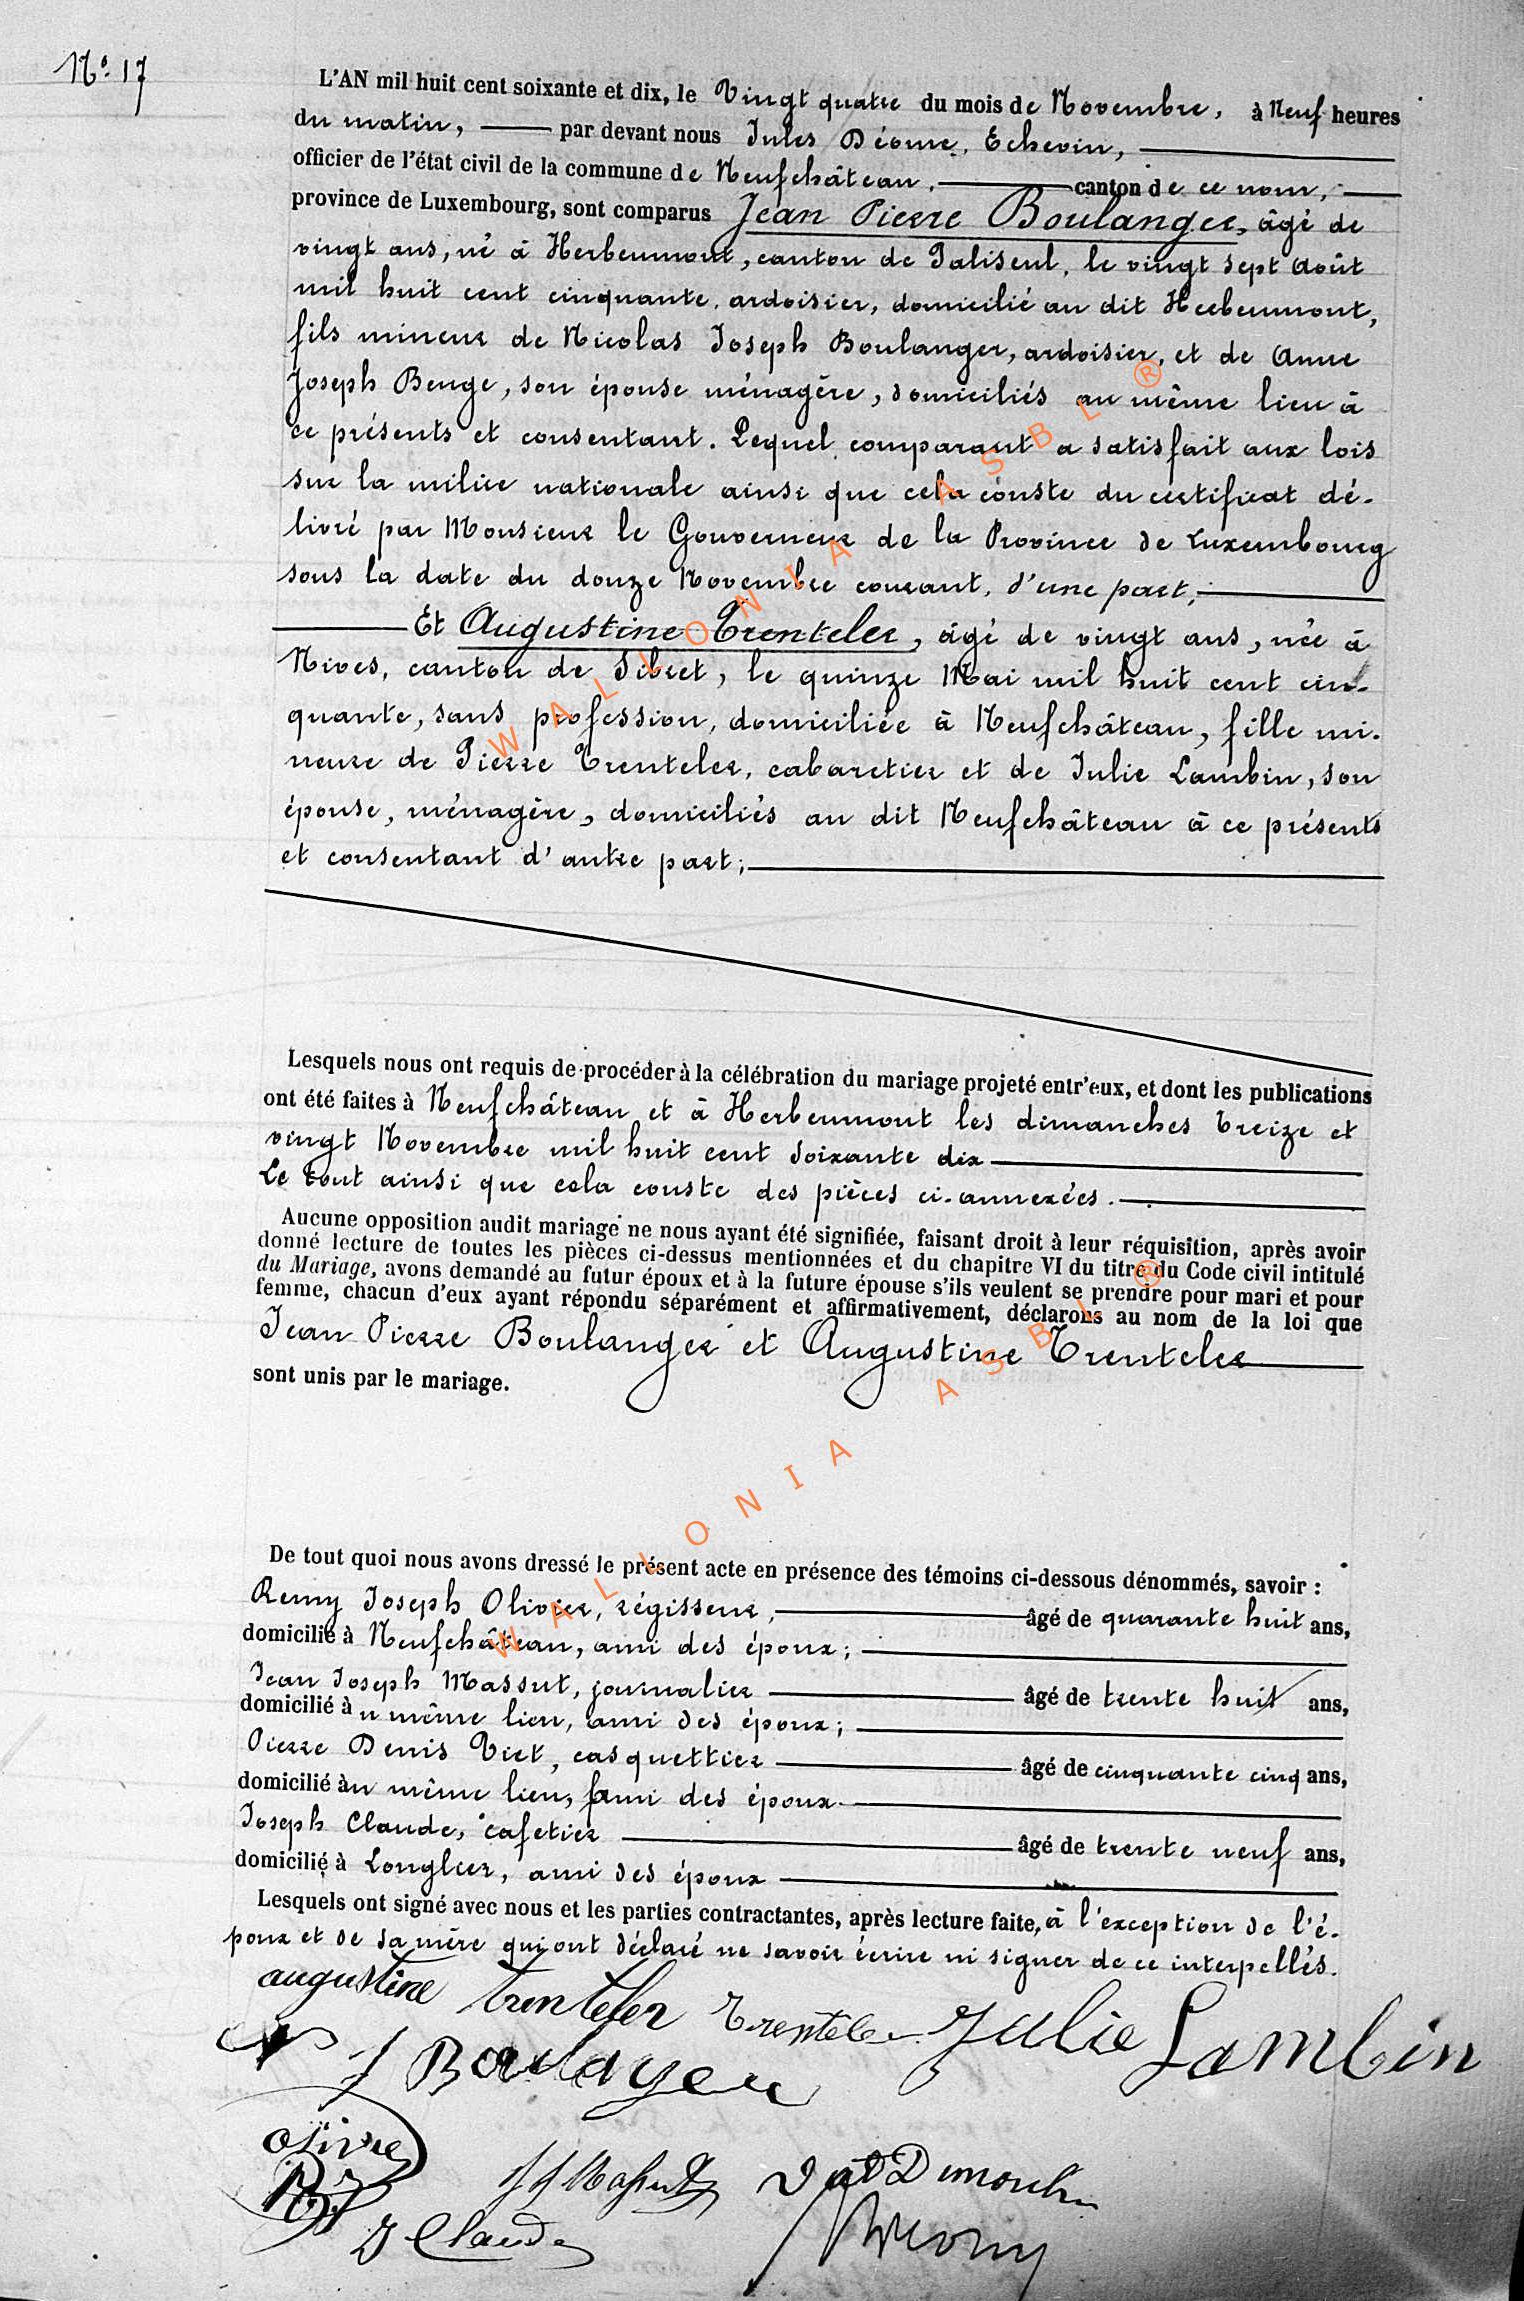 N° 17
L'AN mil huit cent soixante et dix, le Vingt quatre du mois de Novembre, à Neuf heures
du matin, par devant nous Jules Déome, Echevin,
officier de l'état civil de la commune de Neufchâteau, canton de ce nom,
province de Luxembourg, sont comparus Jean Pierre Boulanger, âgé de
vingt ans, né à Herbeumont, canton de Paliseul, le vingt sept Août
mil huit cent cinquante, ardoisier, domicilié au dit Herbeumont,
fils mineur de Nicolas Joseph Boulanger, ardoisier, et de Anne
Joseph Benge, son épouse ménagère, domiciliés au même lieu à
ce présents et consentant. Lequel comparant a satisfait aux lois
sur la milice nationale ainsi que cela conste du certificat dé-
livré par Monsieur le Gouverneur de la Province de Luxembourg
sous la date du douze Novembre courant, d'une part,
Et Augustine Trenteler, âgé de vingt ans, née à
Nives, canton de Sibret, le quinze Mai mil huit cent cin-
quante, sans profession, domiciliée à Neufchâteau, fille mi-
neure de Pierre Trenteler, cabaretier et de Julie Lambin, son
épouse, ménagère, domiciliés au dit Neufchâteau à ce présents
et consentant d'autre part;
Lesquels nous ont requis de procéder à la célébration du mariage projeté entr'eux, et dont les publications
ont été faites à Neufchâteau et à Herbeumont les dimanches treize et
vingt Novembre mil huit cent soixante dix
Le tout ainsi que cela conste des pièces ci-annexées.
Aucune opposition audit mariage ne nous ayant été signifiée, faisant droit à leur réquisition, après avoir
donné lecture de toutes les pièces ci-dessus mentionnées et du chapitre VI du titre du Code civil intitulé
du Mariage, avons demandé au futur époux et à la future épouse s'ils veulent se prendre pour mari et pour
femme, chacun d'eux ayant répondu séparément et affirmativement, déclarons au nom de la loi que
Jean Pierre Boulanger et Augustine Trenteler
sont unis par le mariage.
De tout quoi nous avons dressé le présent acte en présence des témoins ci-dessous dénommés, savoir :
Remy Joseph Olivier, régisseur, âgé de quarante huit ans,
domicilié à Neufchâteau, ami des époux;
Jean Joseph Massut, journalier âgé de trente huit ans,
domicilié à u même lieu, ami des époux;
Pierre Denis Viet, casquettier âgé de cinquante cinq ans,
domicilié àu même lieu, ami des époux
Joseph Claude, cafetier âgé de trente neuf ans,
domicilié à Longlier, ami des époux
Lesquels ont signé avec nous et les parties contractantes, après lecture faite, à l'exception de l'é-
poux et de sa mère qui ont déclaré ne savoir écrire ni signer de ce interpellés.
augustine trenteler Trenteler Julie Lambin
J Boulager
olivie
J J Massut
J Claude
WALLONIA ASBL ®
WALLONIA ASBL ®